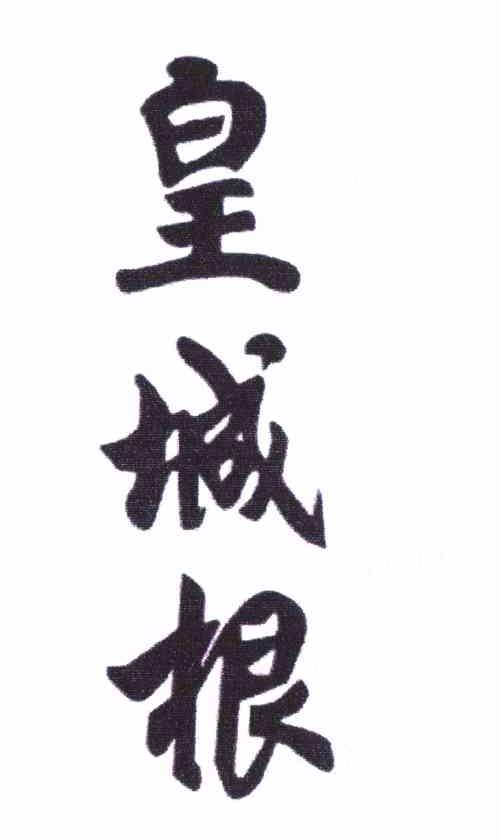 皇城根